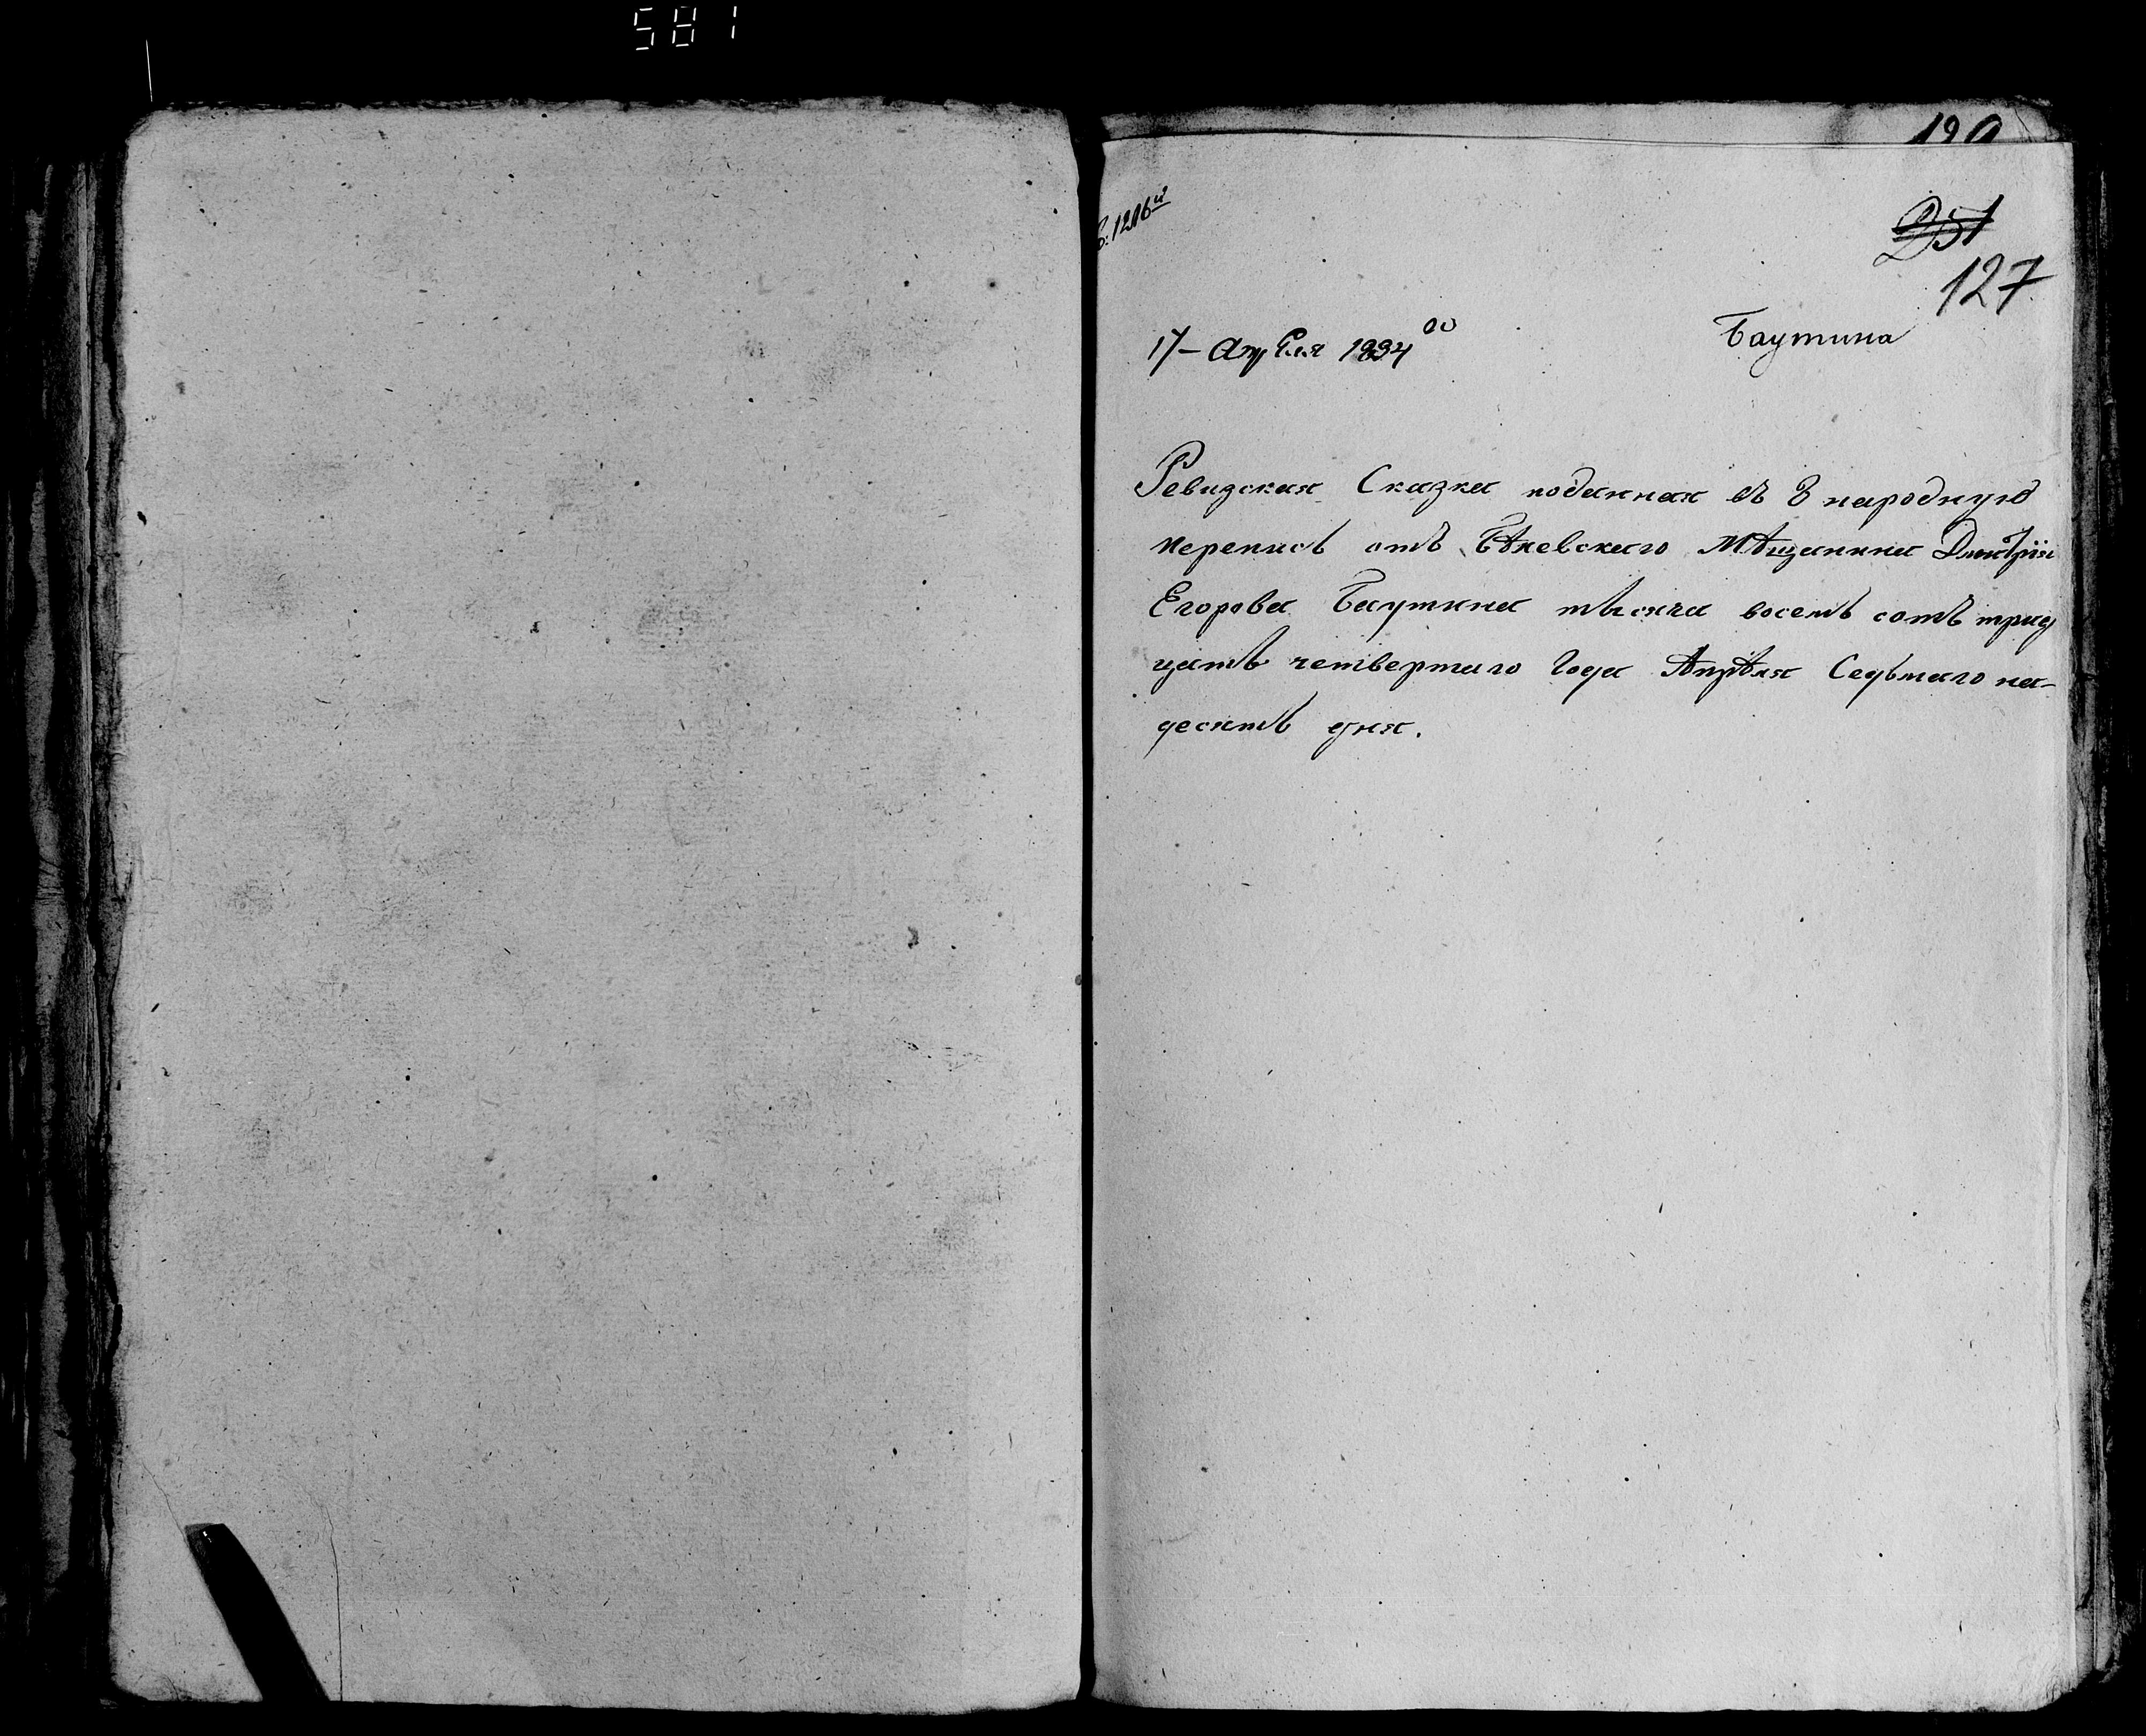 581
120
1216й
251
127
17 – Апреля 1834го
Баутина
Ревизская Сказка поданная въ 8 народную
перепись отъ Бѣлевскаго Мѣщанина Дмитрія
Егорова Баутина тысяча восемь сотъ трид
цать четвертаго Года Апрѣля Седьмаго на-
десять дня.